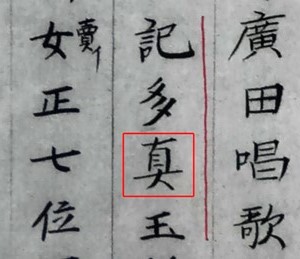 廣田唱歌
記多真玉
女賣正七位